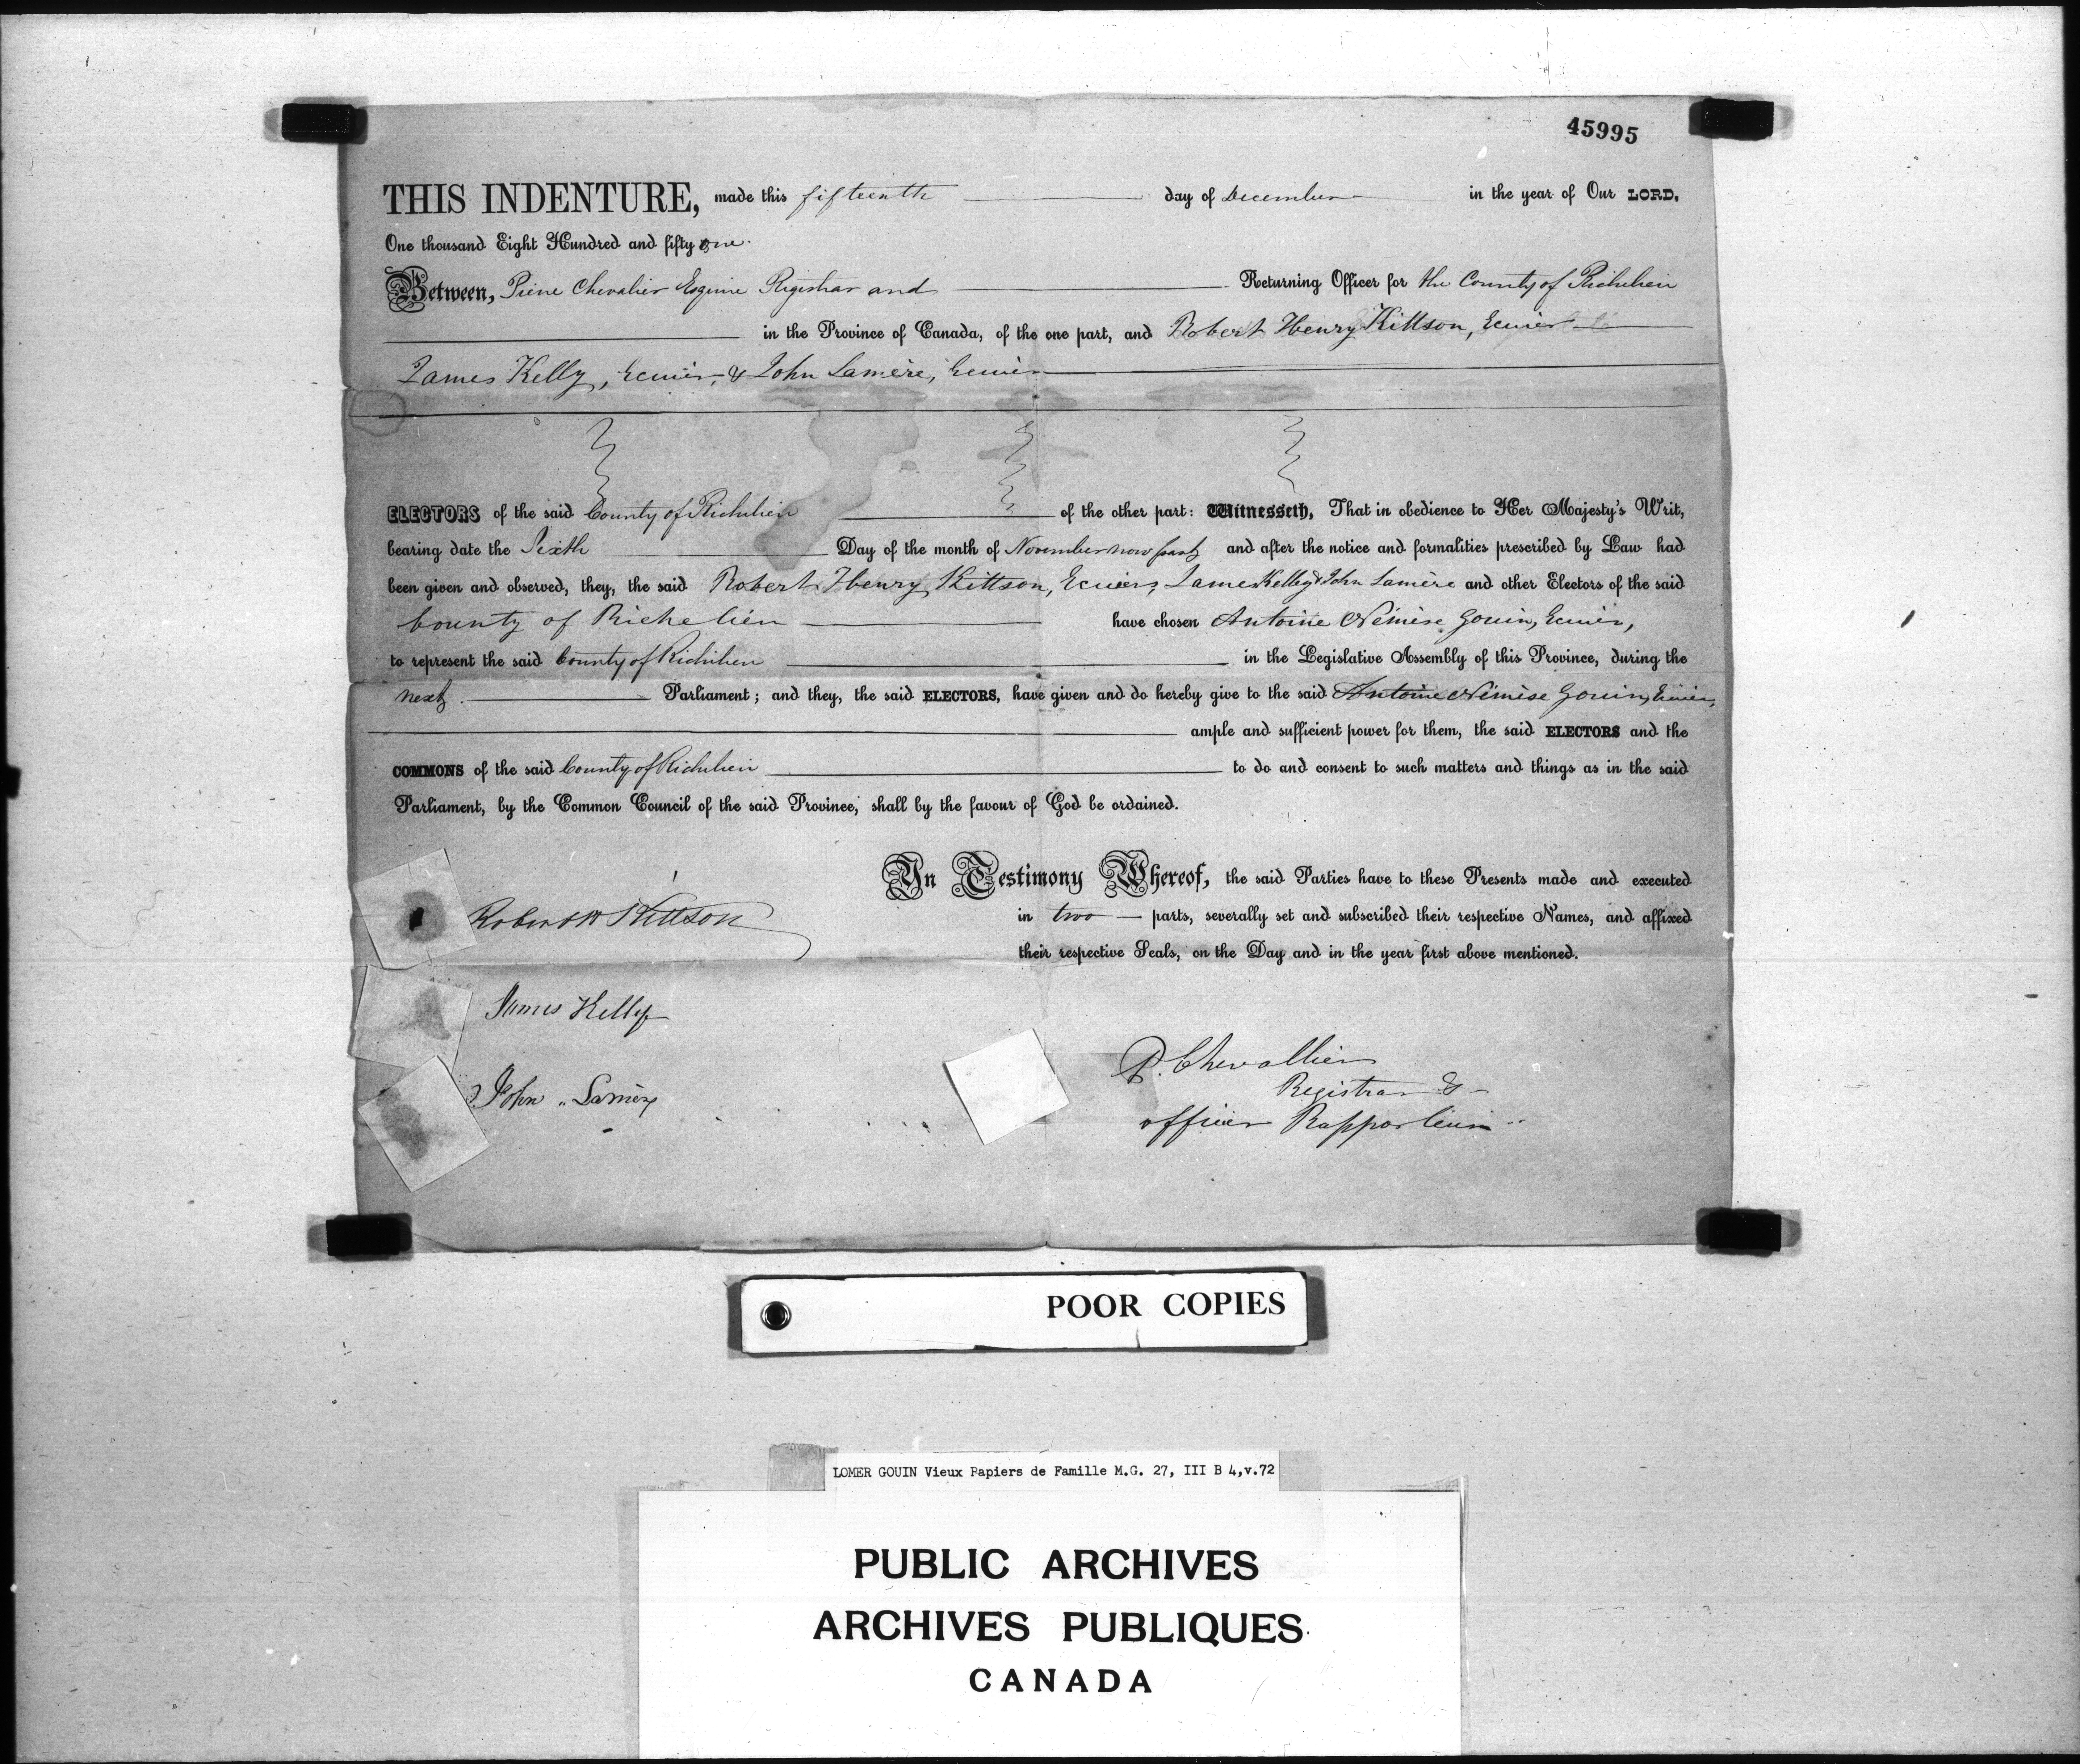 45995
THIS INDENTURE, made this fifteenth day of December in the year of Our LORD,
One thousand Eight Hundred and fifty one.
Between, Pierre Chevalier Esquire Registrar and Returning Officer for the County of Richelieu
in the Province of Canada, of the one part, and Robert Henry Kittson, Ecuier
James Kelly, Ecuier, & John Lamère, Ecuier
ELECTORS of the said County of Richelieu of the other part: Witnesseth, That in obedience to Her Majesty's Writ,
bearing date the Sixth Day of the month of November now past and after the notice and formalities prescribed by Law had
been given and observed, they, the said Robert Henry Kittson, Ecuiers, James Kelly & John Lamère and other Electors of the said
County of Richelieu have chosen Antoine Némèse Gouin, Ecuier,
to represent the said County of Richelieu in the Legislative Assembly of this Province, during the
next Parliament; and they, the said ELECTORS, have given and do hereby give to the said Antoine Némèse Gouin, Ecuier,
ample and sufficient power for them, the said ELECTORS and the
COMMONS of the said County of Richelieu to do and consent to such matters and things as in the said
Parliament, by the Common Council of the said Province, shall by the favour of God be ordained.
In Testimony Whereof, the said Parties have to these Presents made and executed
in two parts, severally set and subscribed their respective Names, and affixed
their respective Seals, on the Day and in the year first above mentioned.
Robert H Kittson
James Kelly
John Lamère
P. Chevallier
Registrar &
officier Rapporteur
POOR COPIES
LOMER GOUIN Vieux Papiers de Famille M.G. 27, III B 4,v.72
PUBLIC ARCHIVES
ARCHIVES PUBLIQUES
CANADA